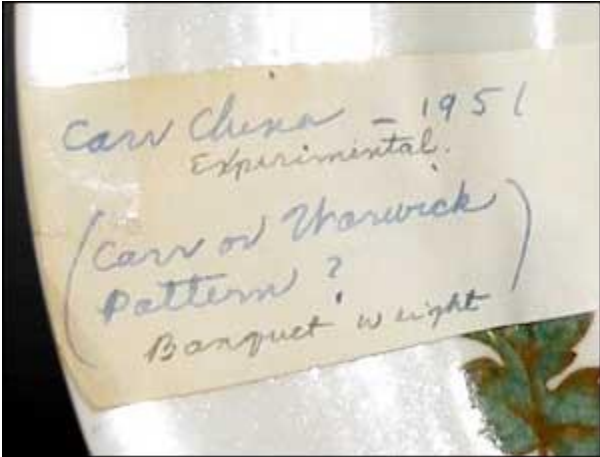 Carr China - 1951
Experimental.
(Carr or Warwick
Pattern ? )
Banquet weight